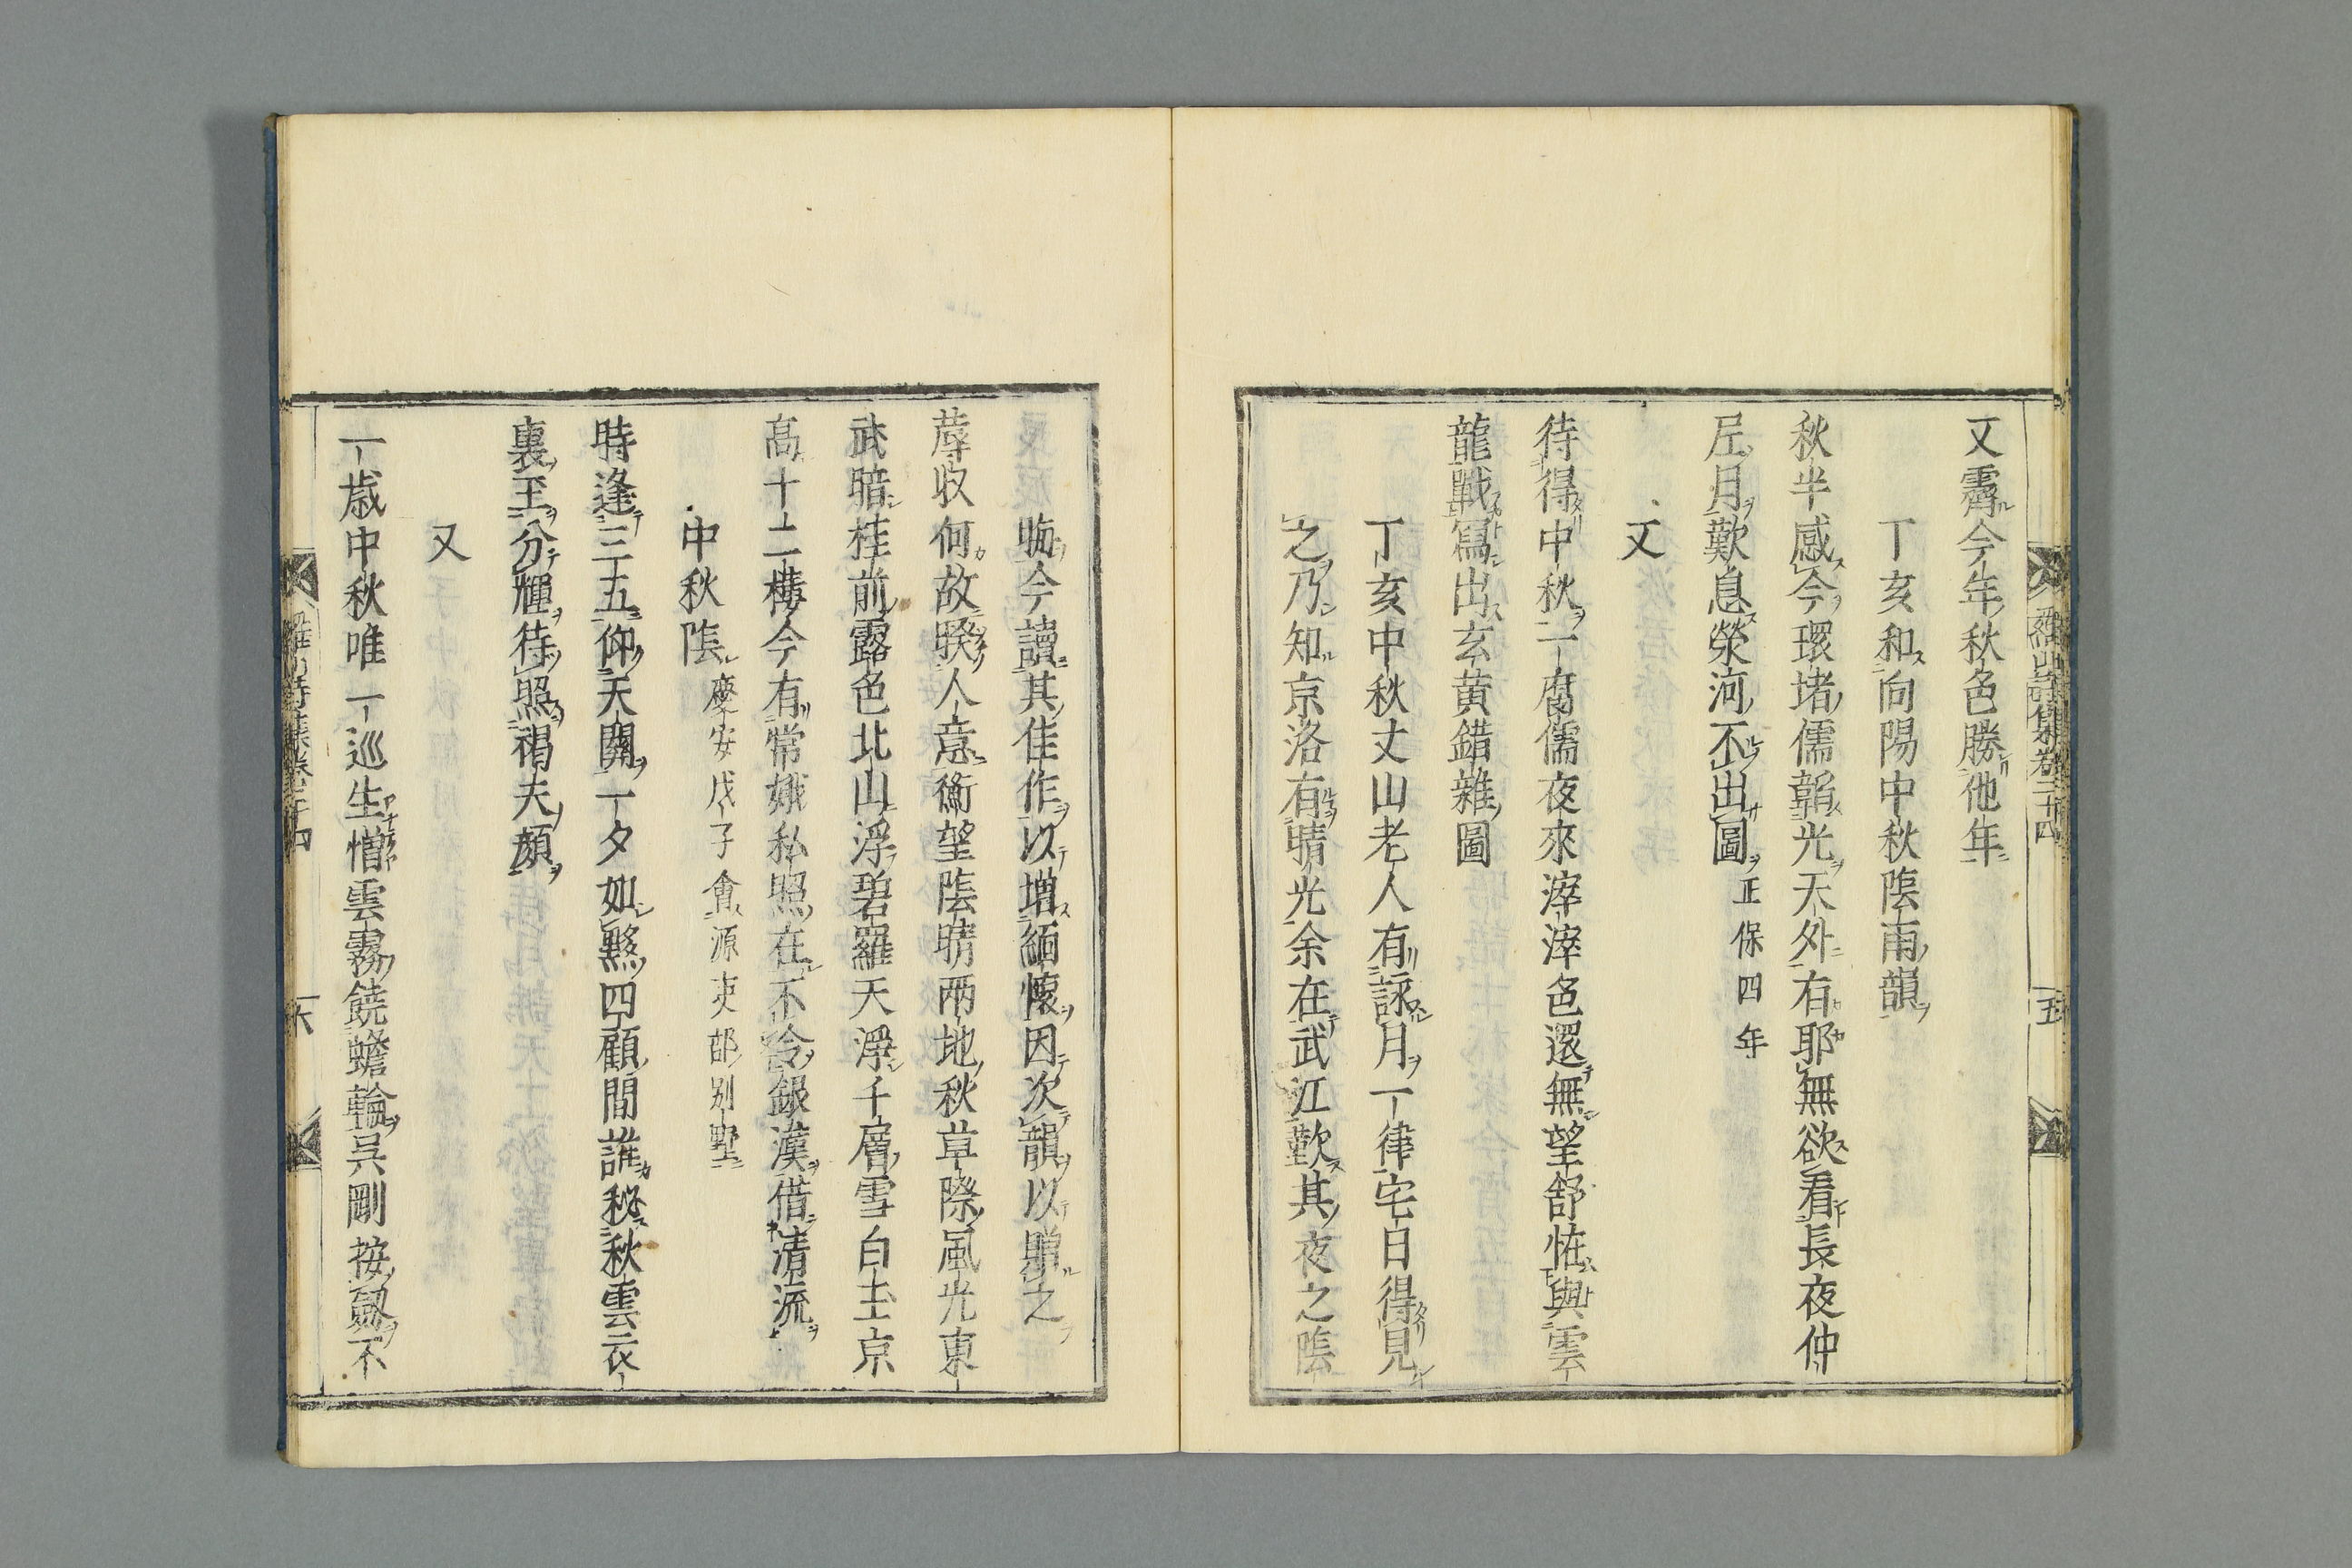 羅山詩集卷三十四
五
又霽今年秋色勝他年
丁亥和向陽中秋陰雨韻
秋半感今環堵儒韜光天外有耶無欲看長夜仲
尼月歎息滎河不出圖正保四年
又
待得中秋一腐儒夜來滓滓色還無望舒恠與雲
龍戰寫出玄黄錯雜圖
丁亥中秋丈山老人有詠月一律宅日得見
之乃知京洛有晴光余在武江歎其夜之陰
晦今讀其佳作以增緬懷因次韻以贈之
蓐收何故暌人意衛望陰晴兩地秋草際風光東
武暗桂前露色北山浮碧羅天淨千層雪白玉京
高十二樓今有常娥私照在不令銀漢借清流
中秋陰慶安戊子會源吏部別墅
時逢三五仰天關一夕如㸃四顧間誰秘秋雲衣
裏玉分輝待照褐夫顏
又
一歲中秋唯一巡生憎雲霧饒蟾輪呉剛按劔不
羅山詩集卷三十四
六